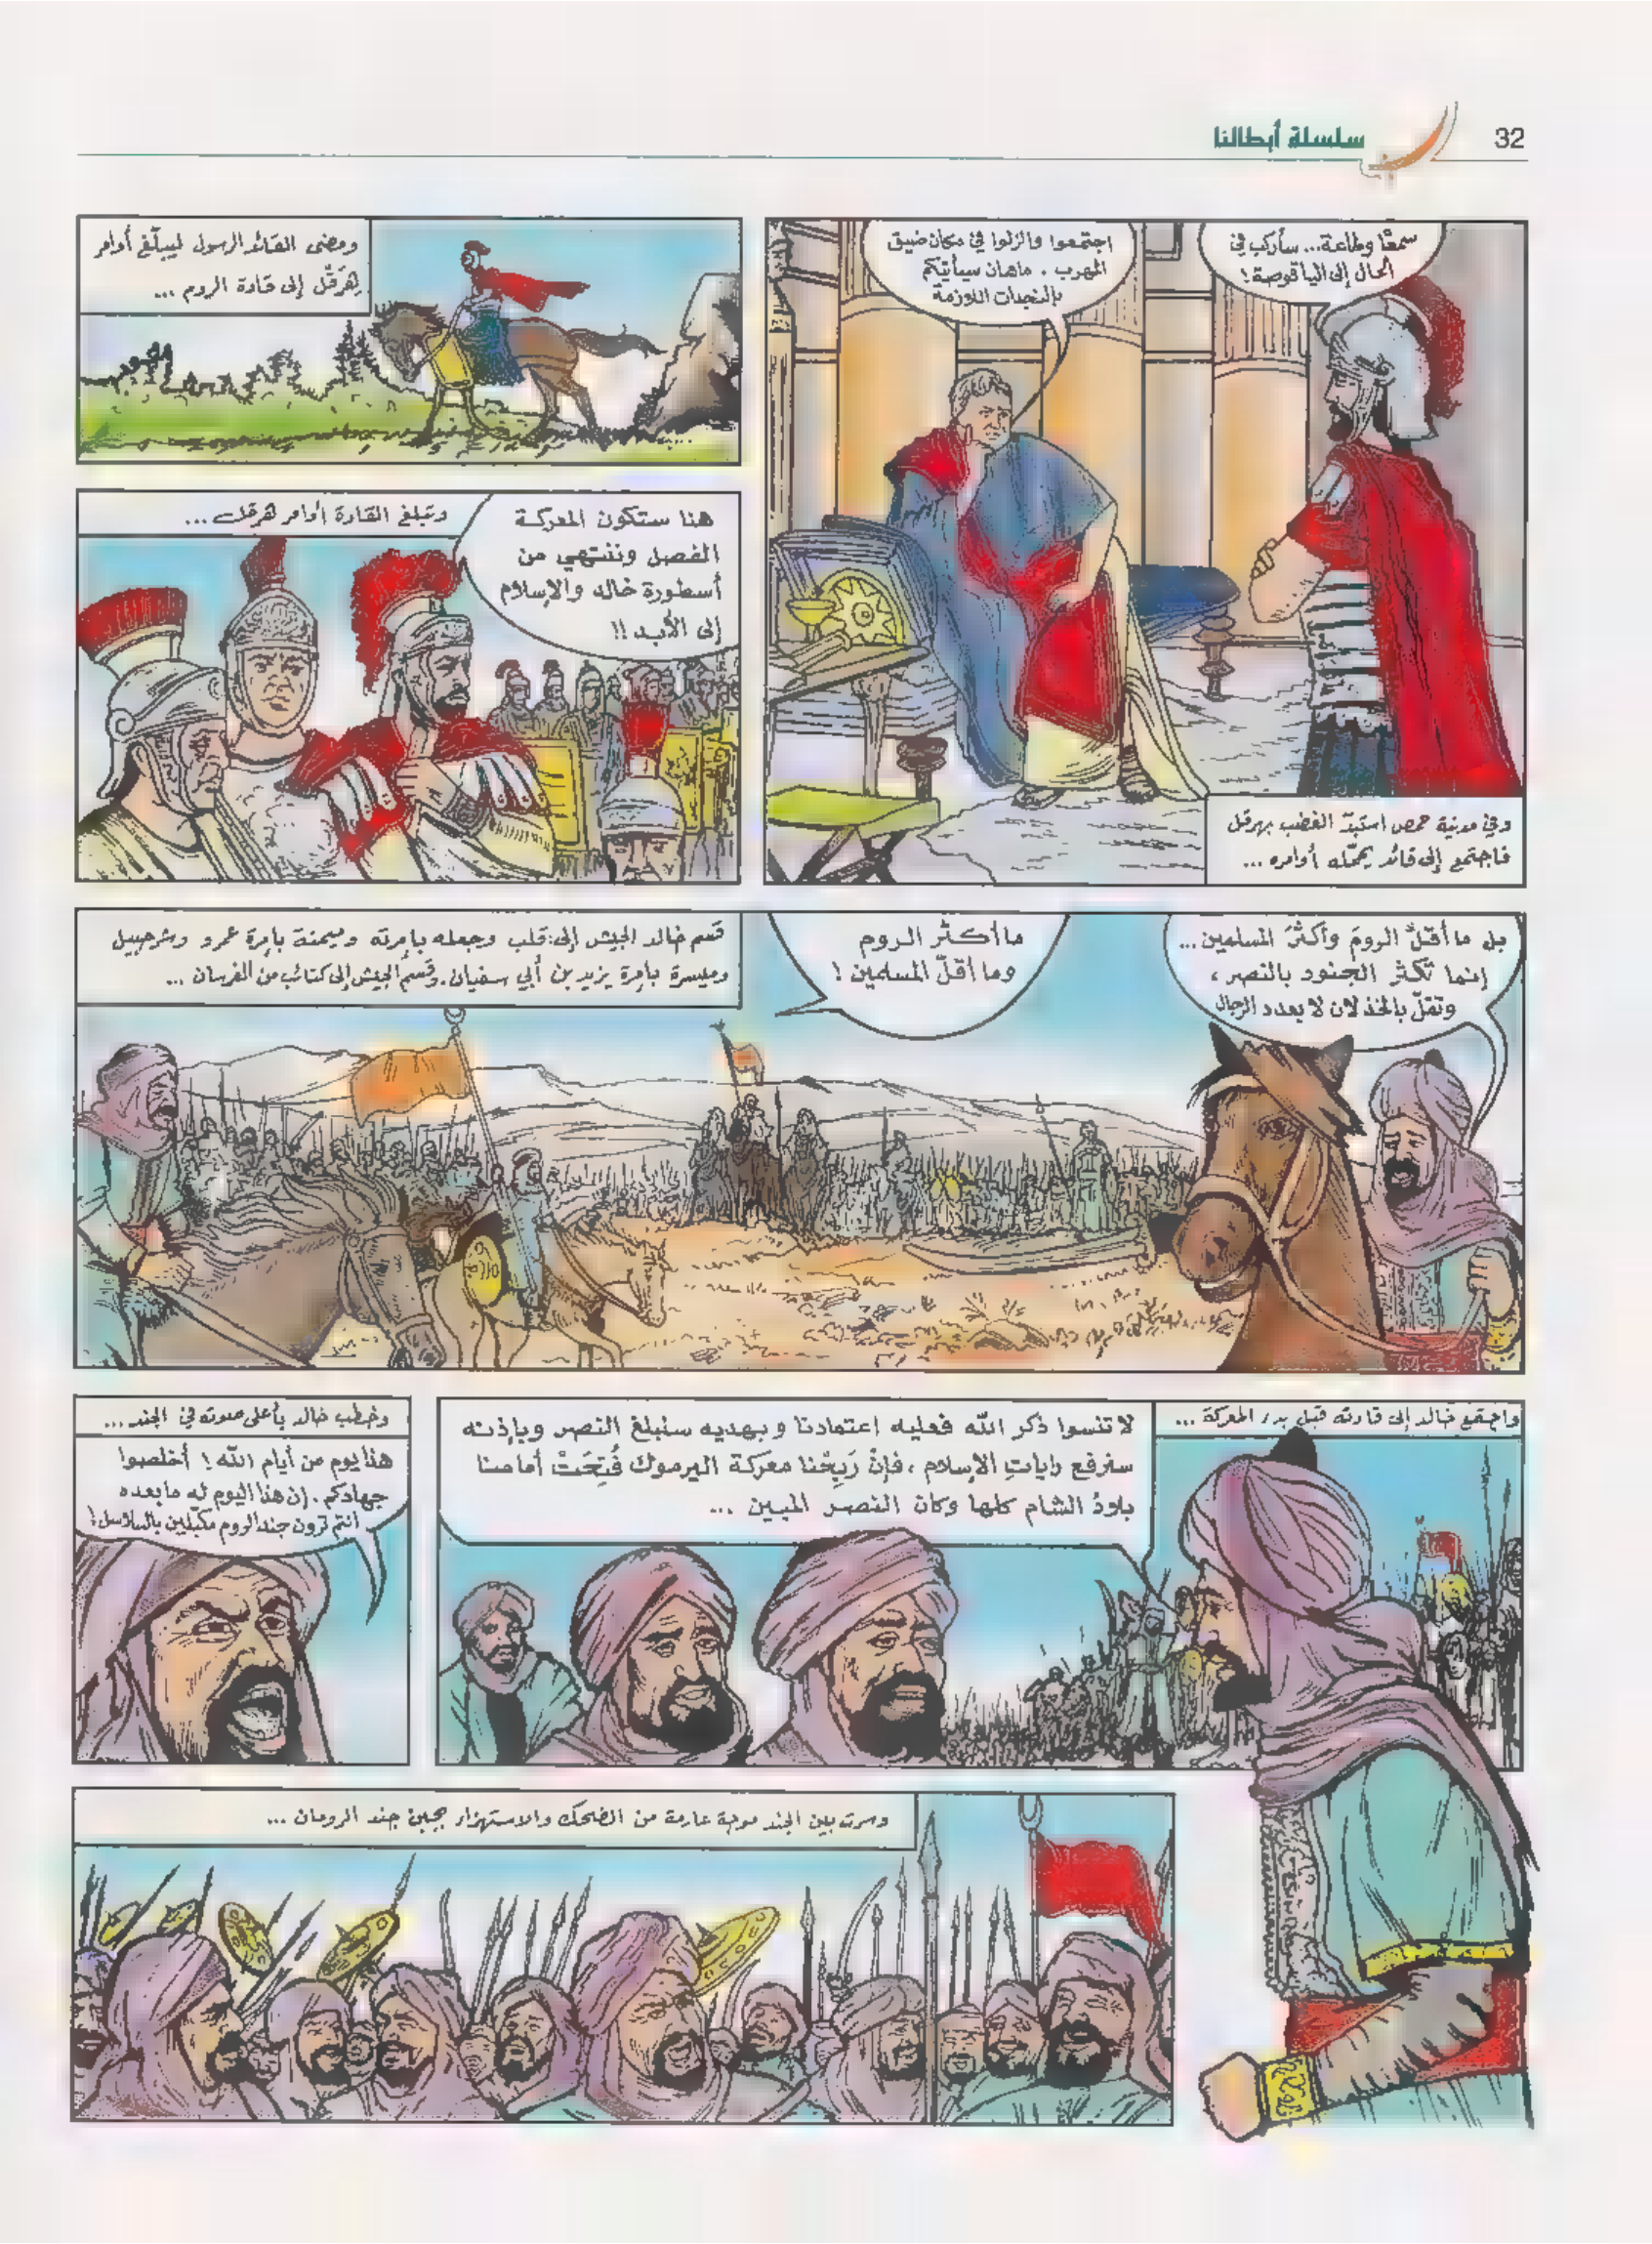 32
سلسلة أبطالنا
سمعًا وطاعة... سأركب في
الحال إلى الياقوصة!
اجتمعوا وانزلوا في مكان ضيق
المهرب. ماهان سيأتيكم
بالنجدات اللازمة
وفي مدينة حمص استبدّ الغضب بهرقل
فاجتمع إلى قائد يحمّله أوامره...
ومضى القائد الرسول ليبلّغ أوامر
هِرَقْل إلى قادة الروم ...
وتبلغ القادة أوامر هرقل...
هنا ستكون المعركة
الفصل وننتهي من
أسطورة خالد والإسلام
إلى الأبد!!
بل ما أقلّ الرومَ وأكثرَ المسلمين...
إنما تكثر الجنود بالنصر،
وتقلّ بالخذلان لا بعدد الرجال
ما أكثر الروم
وما أقلّ المسلمين!
قسم خالد الجيش إلى: قلب وجعله بإمرته وميمنة بإمرة عمرو وشرحبيل
وميسرة بإمرة يزيد بن أبي سفيان. وقسم الجيش إلى كتائب من الفرسان ...
واجتمع خالد إلى قادته قبل بدء المعركة ...
لا تنسوا ذكر الله فعليه اعتمادنا وبهديه سنبلغ النصر وبإذنه
سنرفع رايات الإسلام، فإنْ رَبِحْنا معركة اليرموك فُتِحَتْ أمامنا
بلادُ الشام كلها وكان النصر المبين ...
وخطب خالد بأعلى صوته في الجند...
هذا يوم من أيام الله! أخلصوا
جهادكم. إن هذا اليوم له ما بعده
أنتم ترون جند الروم مكبّلين بالسلاسل!
وسرت بين الجند موجة عارمة من الضحك والاستهزاء بجبن جند الرومان ...